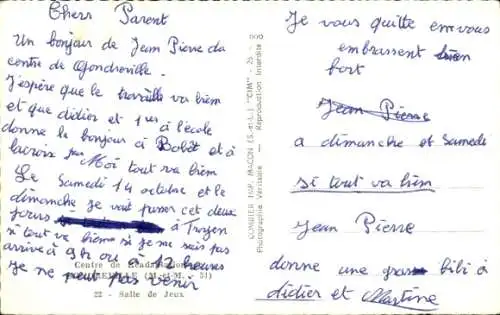 Chers Parent
Un bonjour de Jean Pierre du
centre de Gondreville.
J'espère que le travaille va bien
et que didier et 1er à l'école
donne le bonjour à Bobèt et à
lacroix pour Moi tout va bien
Le Samedi 14 octobre et le
dimanche je vait passer cet deux
jours à
si tout va bien si je me sais pas
arrivé à 9h ou à 12 heures
Je ne peut pas venir
Centre de Réadaptation
GONDREVILLE (M.-et-M. - 54)
22 - Salle de Jeux
COMBIER IMP. MACON (S.-et-L.) "CIM"
Photographie Véritable - Reproduction Interdite
Je vous quitte en vous
embrassent bien
fort
Jean Pierre
a dimanche et Samedi
si tout va bien
Jean Pierre
donne une gros bibi à
didier et Martine